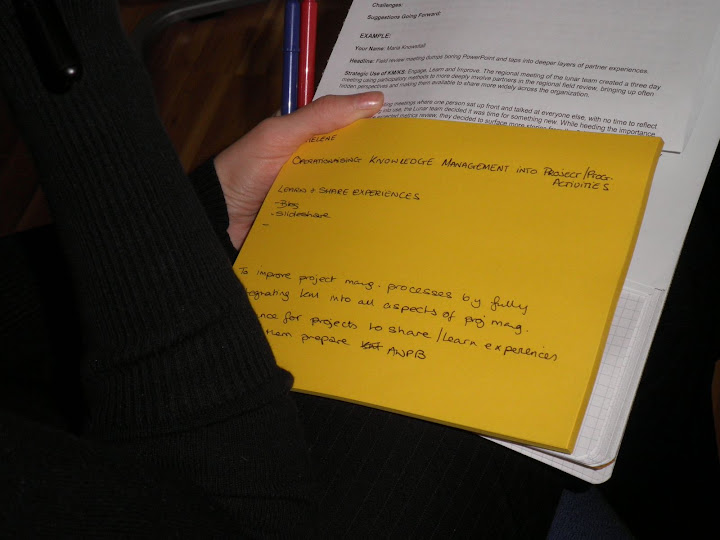 Challenges:
Suggestions Going Forward:
EXAMPLE:
Your Name: Maria Knowitall
Headline: Field review meeting dumps boring PowerPoint and taps into deeper layers of partner experiences.
Strategic Use of KM/KS: Engage, Learn and Improve. The regional meeting of the lunar team created a three day
meeting using participatory methods to more deeply involve partners in the regional field review, bringing up often
hidden perspectives and making them available to share more widely across the organization.
meetings where one person sat up front and talked at everyone else, with no time to reflect
use, the Lunar team decided it was time for something new. While heeding the importance
metrics review, they decided to surface more
OPERATIONALISING KNOWLEDGE MANAGEMENT INTO PROJECT/PROG.
ACTIVITIES
LEARN + SHARE EXPERIENCES
- Blog
- Slideshare
-
To improve project mang. processes by fully
KM into all aspects of proj mang.
for projects to share/learn experiences
them prepare AWPB